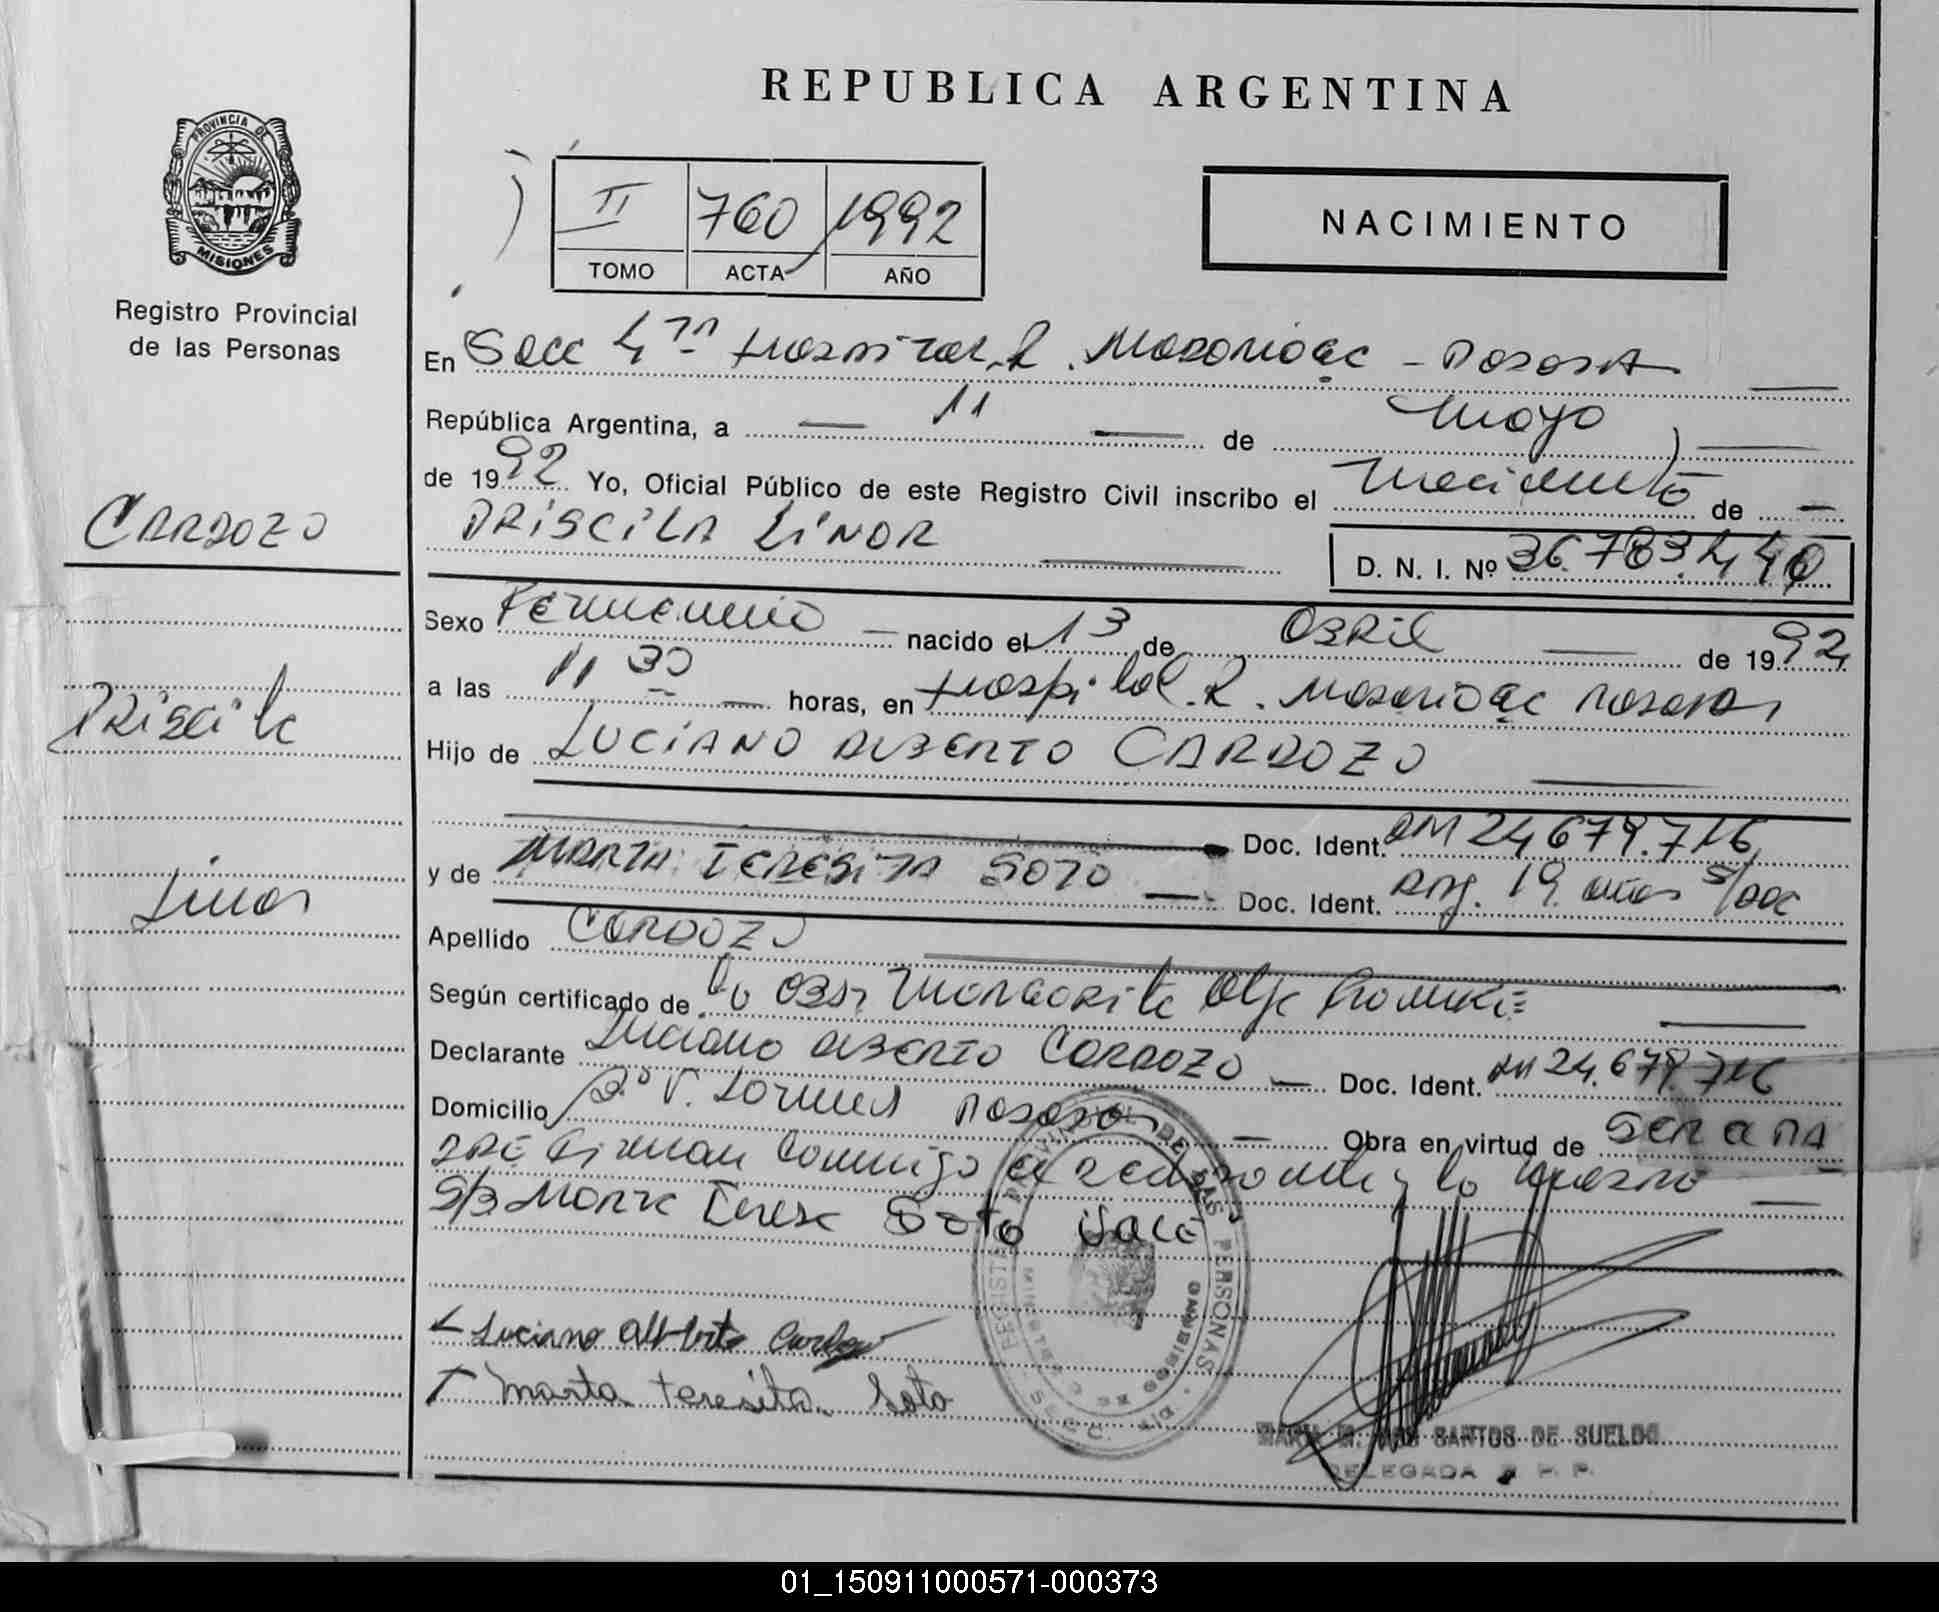 REPUBLICA ARGENTINA
PROVINCIA DE
MISIONES
Registro Provincial
de las Personas
II 760 1992
TOMO ACTA AÑO
NACIMIENTO
En Secc 4ta Hospital R. Madariaga - Posadas
República Argentina, a 11 de Mayo
de 1992 Yo, Oficial Público de este Registro Civil inscribo el Nacimiento de
PRISCILA LINOR
D. N. I. Nº 36.783.440
CARDOZO
Sexo Femenino nacido el 13 de Abril de 1992
a las 11 30 horas, en Hospital R. Madariaga Posadas
Priscila
Hijo de LUCIANO ALBERTO CARDOZO
Doc. Ident. DM 24.679.716
y de MARTA TERESITA SOTO Doc. Ident. Arg. 19 años s/doc
Linor
Apellido CARDOZO
Según certificado de la Obst. Margarita Olga
Declarante Luciano Alberto CARDOZO Doc. Ident. DM 24.679.716
Domicilio Bº V. Posadas Obra en virtud de ser a pa
dre Firman conmigo el declarante y la madre
Soto
Luciano Alberto Cardozo
Marta teresita Soto
REGISTRO PROVINCIAL DE LAS PERSONAS
MINISTERIO DE GOBIERNO
SANTOS DE SUELDO
DELEGADA R. P. P.
01_150911000571-000373